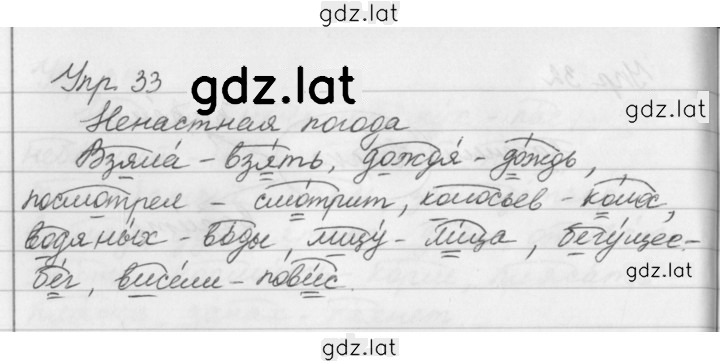 gdz.lat
Упр. 33
gdz.lat
Ненастная погода
Взяла́ - взя́ть, дождя́ - до́ждь,
gdz.lat
посмотрел - смо́трит, колосьев - ко́лос,
водяны́х - во́ды, лицу́ - ли́ца, бегу́щее -
бе́г, висе́ли - пови́с.
gdz.lat
gdz.lat